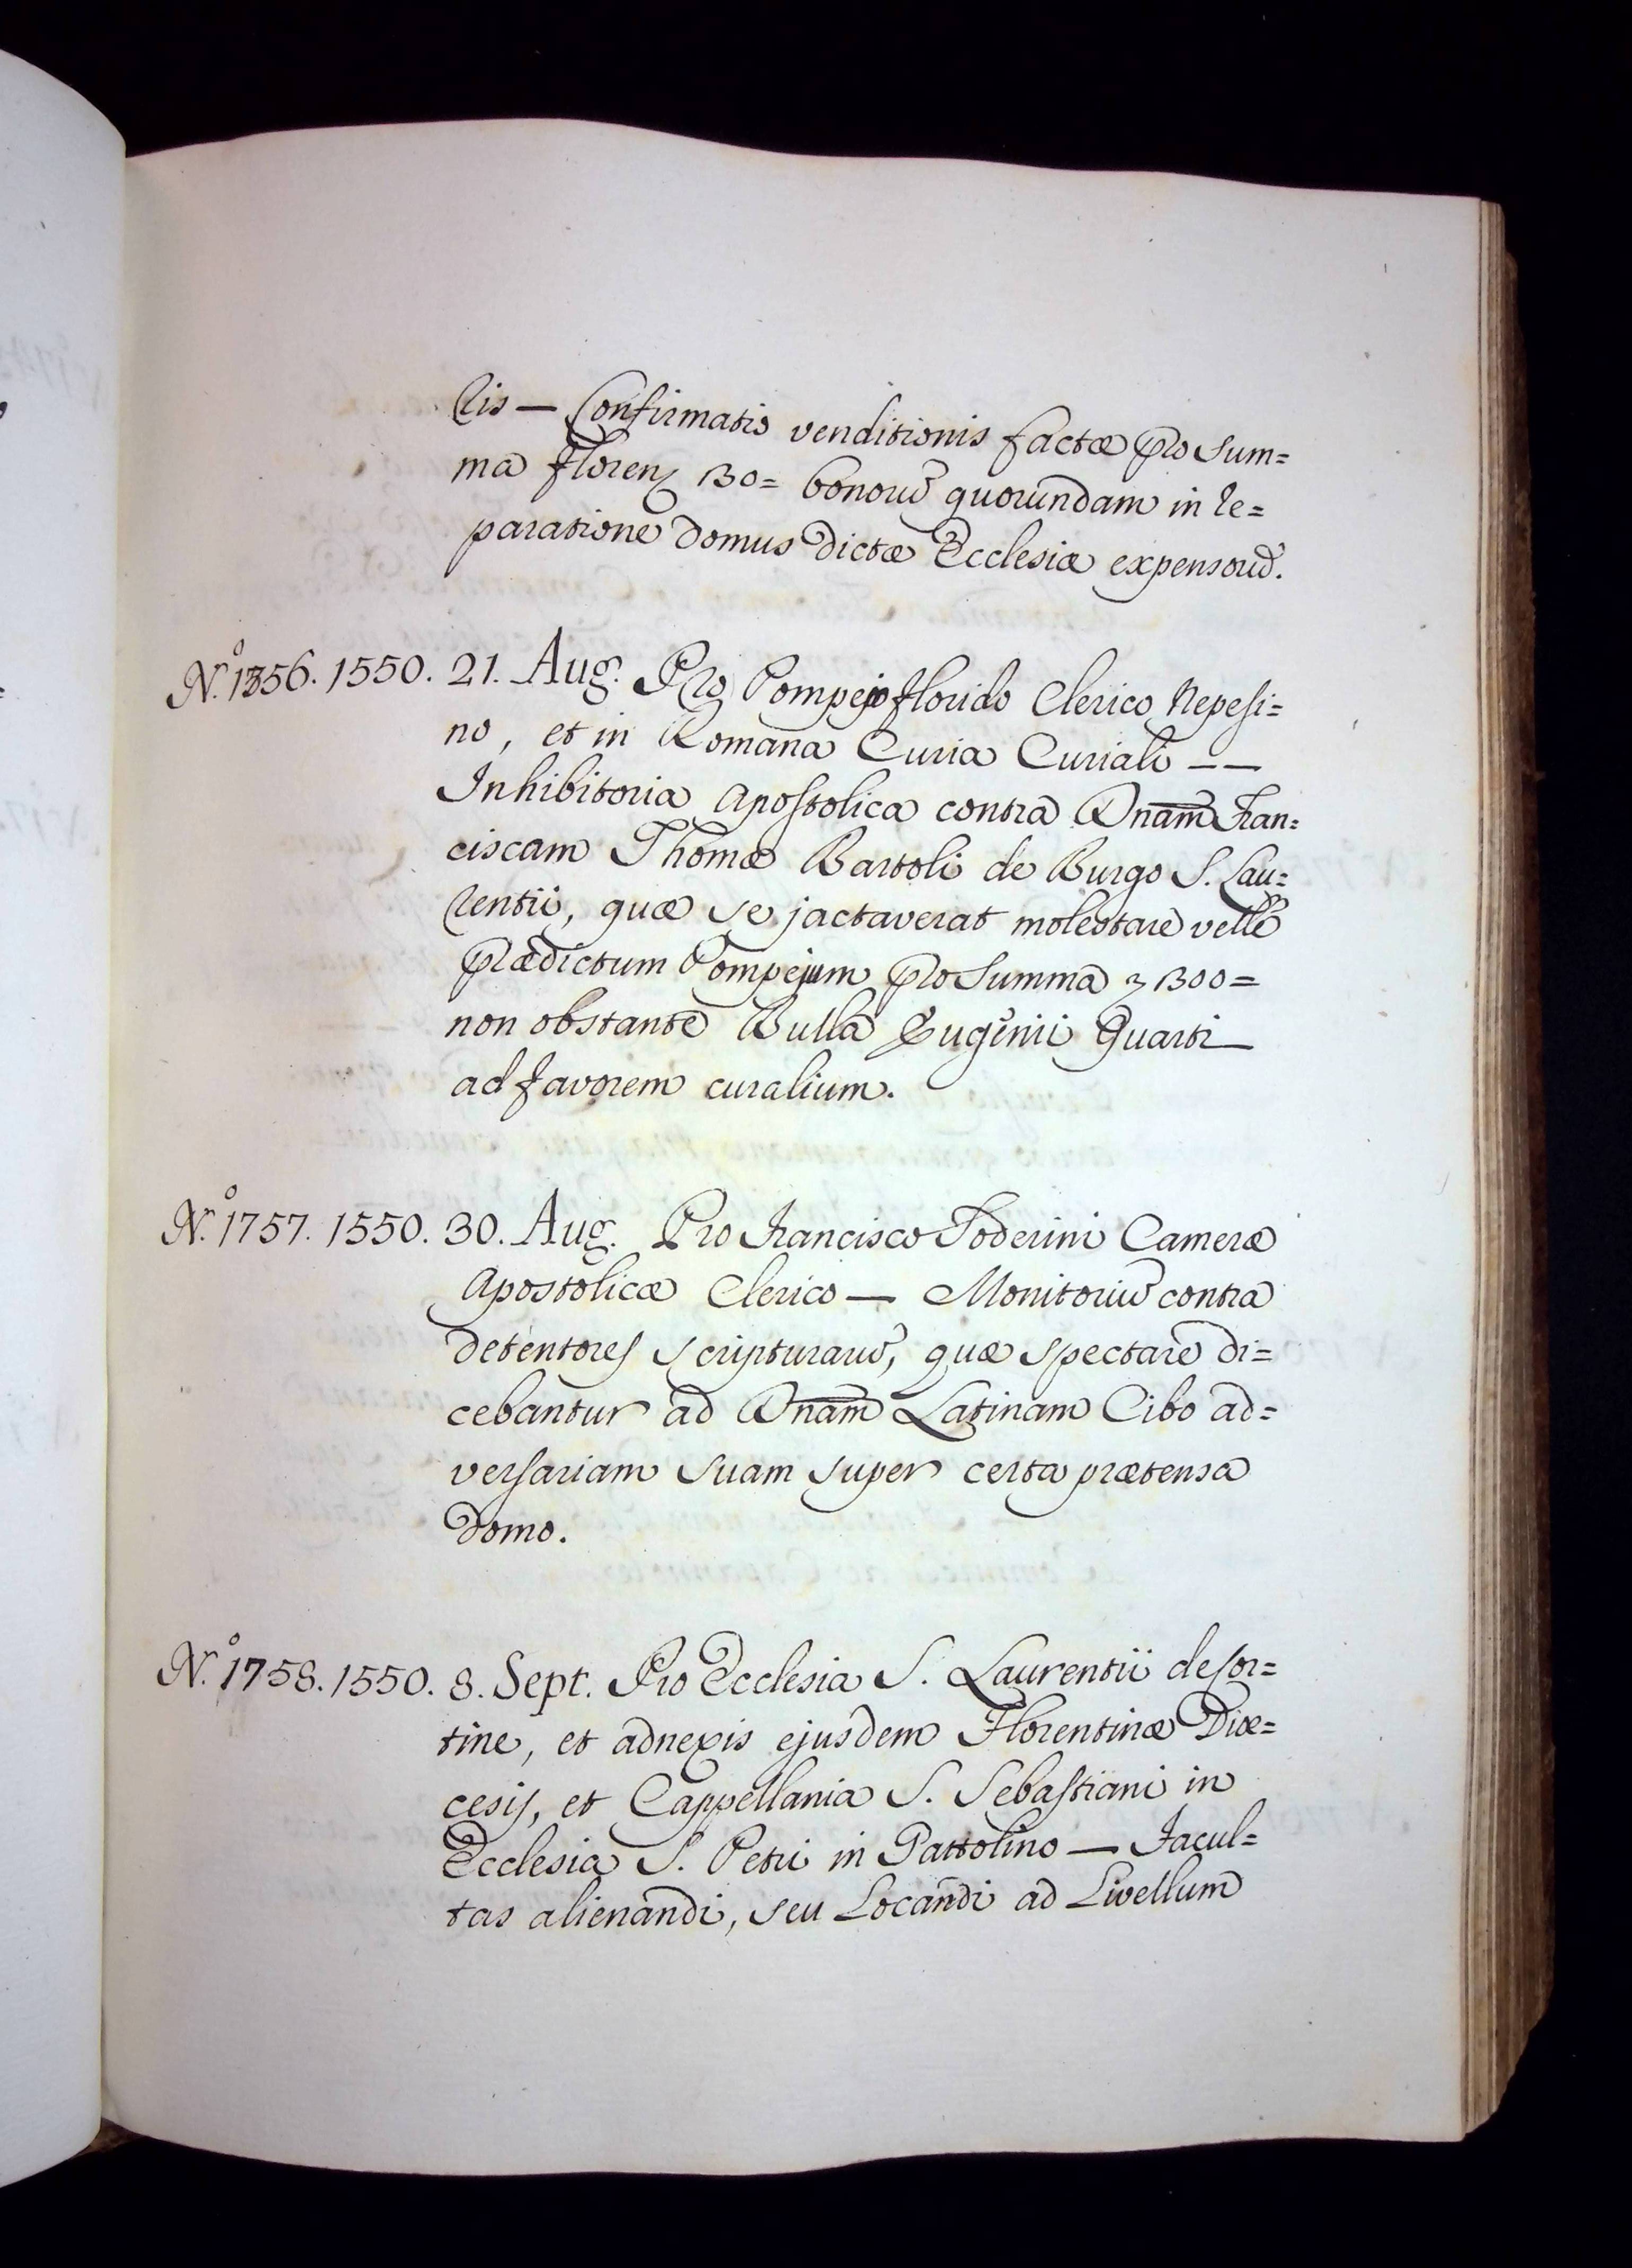 ris — Confirmatio venditionis factæ pro sum=
ma floren 130= bonorũ quorundam in re=
paratione domus dictæ Ecclesiæ expensorũ.
N.º 1756. 1550. 21. Aug. Pro Pompejo florido Clerico Nepesi=
no, et in Romana Curia Curiali — —
Inhibitoria Apostolica contra Dnam Fran=
ciscam Thomæ Bartoli de Burgo S. Lau=
rentii, quæ se jactaverat molestare velle
prædictum Pompejum pro summa 1300=
non obstante Bulla Eugenii Quarti —
ad favorem curalium.
N.º 1757. 1550. 30. Aug. Pro Francisco Soderini Cameræ
Apostolicæ Clerico — Monitoriũ contra
detentores scripturarũ, quæ spectare di=
cebantur ad Dnam Latinam Cibo ad=
versariam suam super certa prætensa
domo.
N.º 1758. 1550. 8. Sept. Pro Ecclesia S. Laurentii de Cor=
tine, et adnexis ejusdem Florentinæ Diœ=
cesis, et Cappellania S. Sebastiani in
Ecclesia S. Petri in Gattolino — Facul=
tas alienandi, seu Locandi ad Livellum